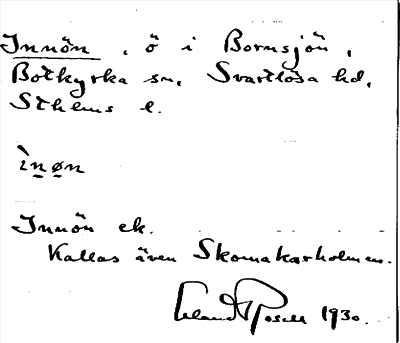 Innön, ö i Bornsjön,
Botkyrka sn, Svartlösa hd,
Sthlms l.
ìnøn
Innön ek.
Kallas även Skomakarholmen.
Erland Rosell 1930.